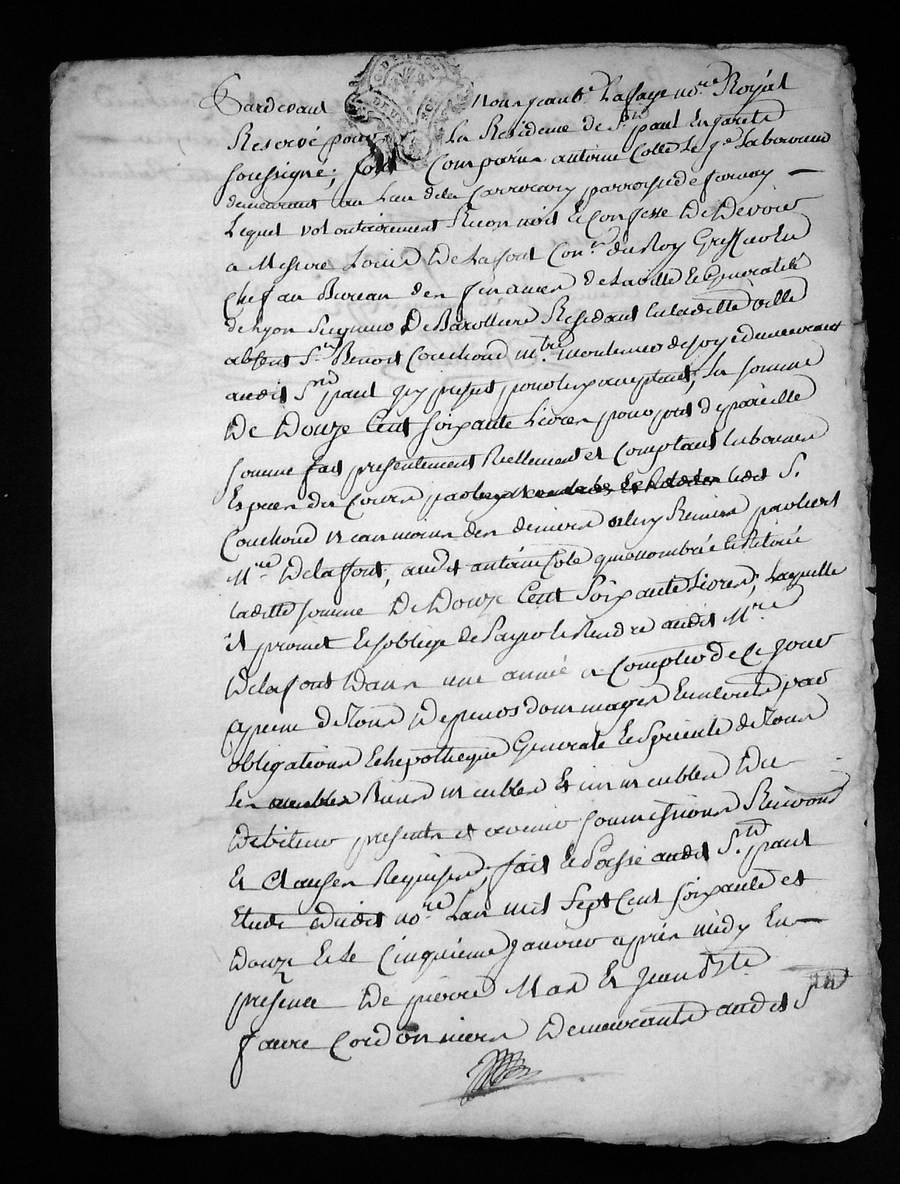 Pardevant Nous jean bte Laffaye nore Royal
Reservé pour La Residence de St paul En jarets
soussigné; fut Comparu antoine Colle Le je Laboureur
demeurant au Lieu dela parroisse de
Lequel volontairement Reconnoit et Confesse De Devoir
a Messire Louis De Lafont Coner du Roy Greffier En
Chef au Bureau des finances de La ville et Generalité
de Lyon seigneur De Barolliere Residant En laditte ville
absent Sr Benoit Couchoud mtre moulinier de soye demeurant
audit St paul icy present pour luy acceptant, La somme
De Douze Cent soixante Livres pour prest de pareille
somme fait presentement Reellement et Comptant En bonnes
Espèces du Cours par ledit Sr
Couchoud et des deniers
Mre Delafont, audit antoine Cole qui a nombrée et Retirée
laditte somme De Douze Cent Soixante Livres, Laquelle
il promet et soblige de Payer et Rendre audit Mre
Delafont Dans une année a Compter De Ce jour
a peine de Tous Depens dommages Interets par
obligations Et hypotheque Generale et Speciale de Tous
Les Biens meubles Et immeubles Du
Debiteur presents et avenir soumissions Renvons
Et Clauses Requises, fait et Passé audit St paul
Etude dudit nore Lan mil Sept Cent Soixante et
Douze Et le Cinquieme janvier après midy En
presence De pierre Mas et jean Bte
faure Cordonniers Demeurants audit St